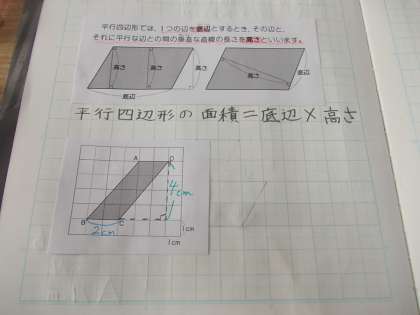 平行四辺形では、1つの辺を底辺とするとき、その辺と、
それに平行な辺との間の垂直な直線の長さを高さといいます。
高さ 高さ 高さ
底辺
高さ
底辺
平行四辺形の面積=底辺×高さ
A D
4cm
B C
2cm
1cm
1cm